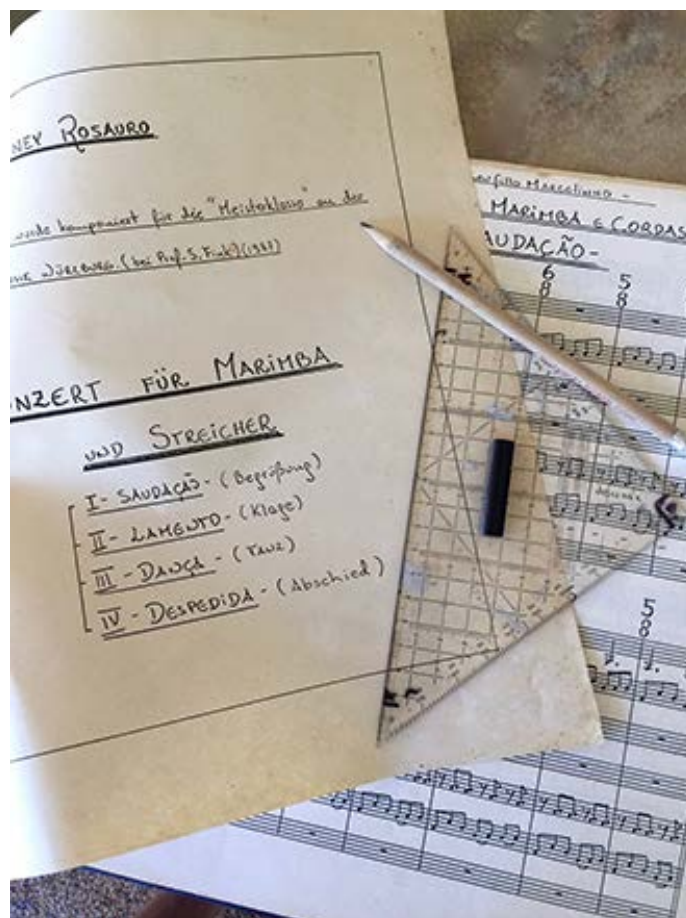 NEY ROSAURO
wurde komponiert für die "Meisterklasse" an der
WÜRZBURG. (bei Prof. S. Fink)
NZERT FÜR MARIMBA
UND STREICHER
I - SAUDAÇÃO - (Begrüßung)
II - LAMENTO - (Klage)
III - DANÇA - (Tanz)
IV - DESPEDIDA - (Abschied)
filho Marcelinho -
MARIMBA E CORDAS
AUDAÇÃO -
6 5
8 8
5
8